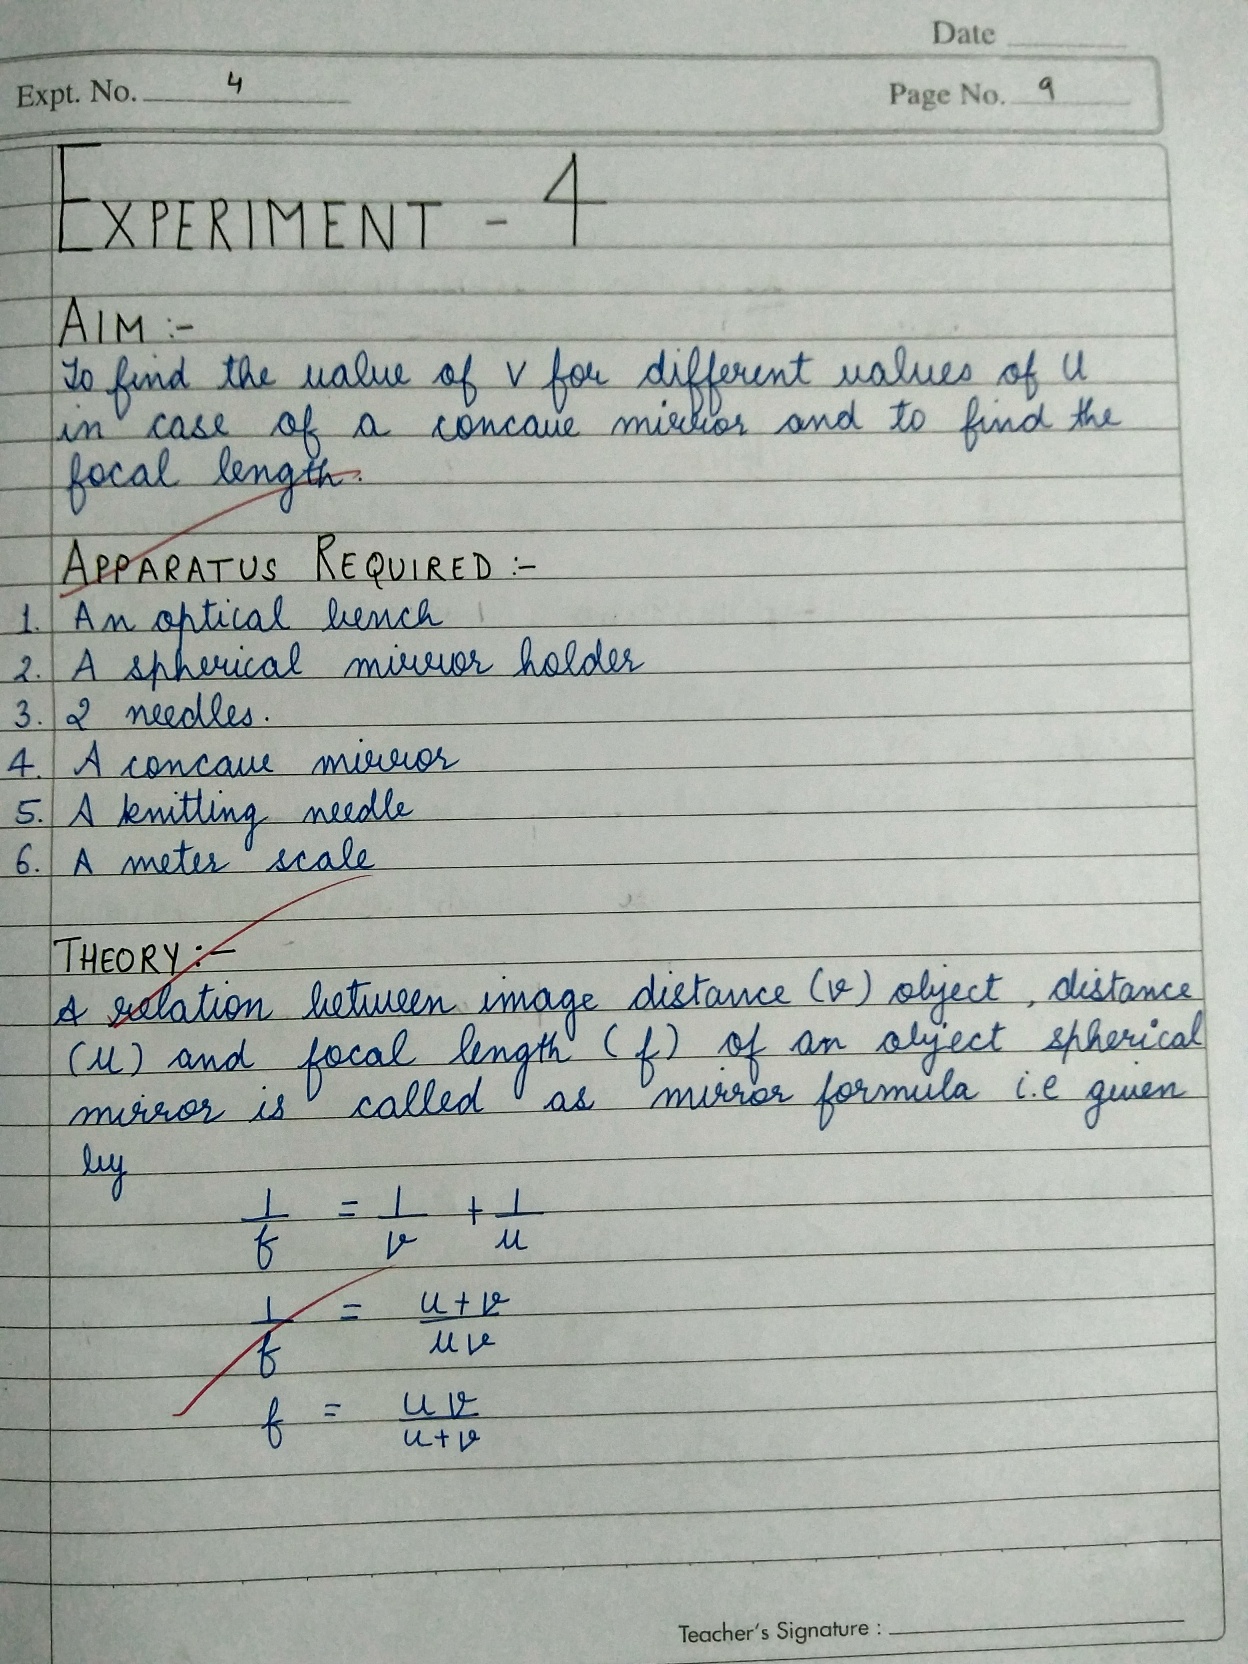 Date
Expt. No. 4
Page No. 9
EXPERIMENT - 4
AIM :-
To find the value of v for different values of U
in case of a concave mirror and to find the
focal length.
APPARATUS REQUIRED :-
1. An optical bench
2. A spherical mirror holder
3. 2 needles.
4. A concave mirror
5. A knitting needle
6. A meter scale
THEORY :-
A relation between image distance (v) object, distance
(u) and focal length (f) of an object spherical
mirror is called as mirror formula i.e given
by
1/f = 1/v + 1/u
1/f = u+v/uv
f = uv/u+v
Teacher's Signature :